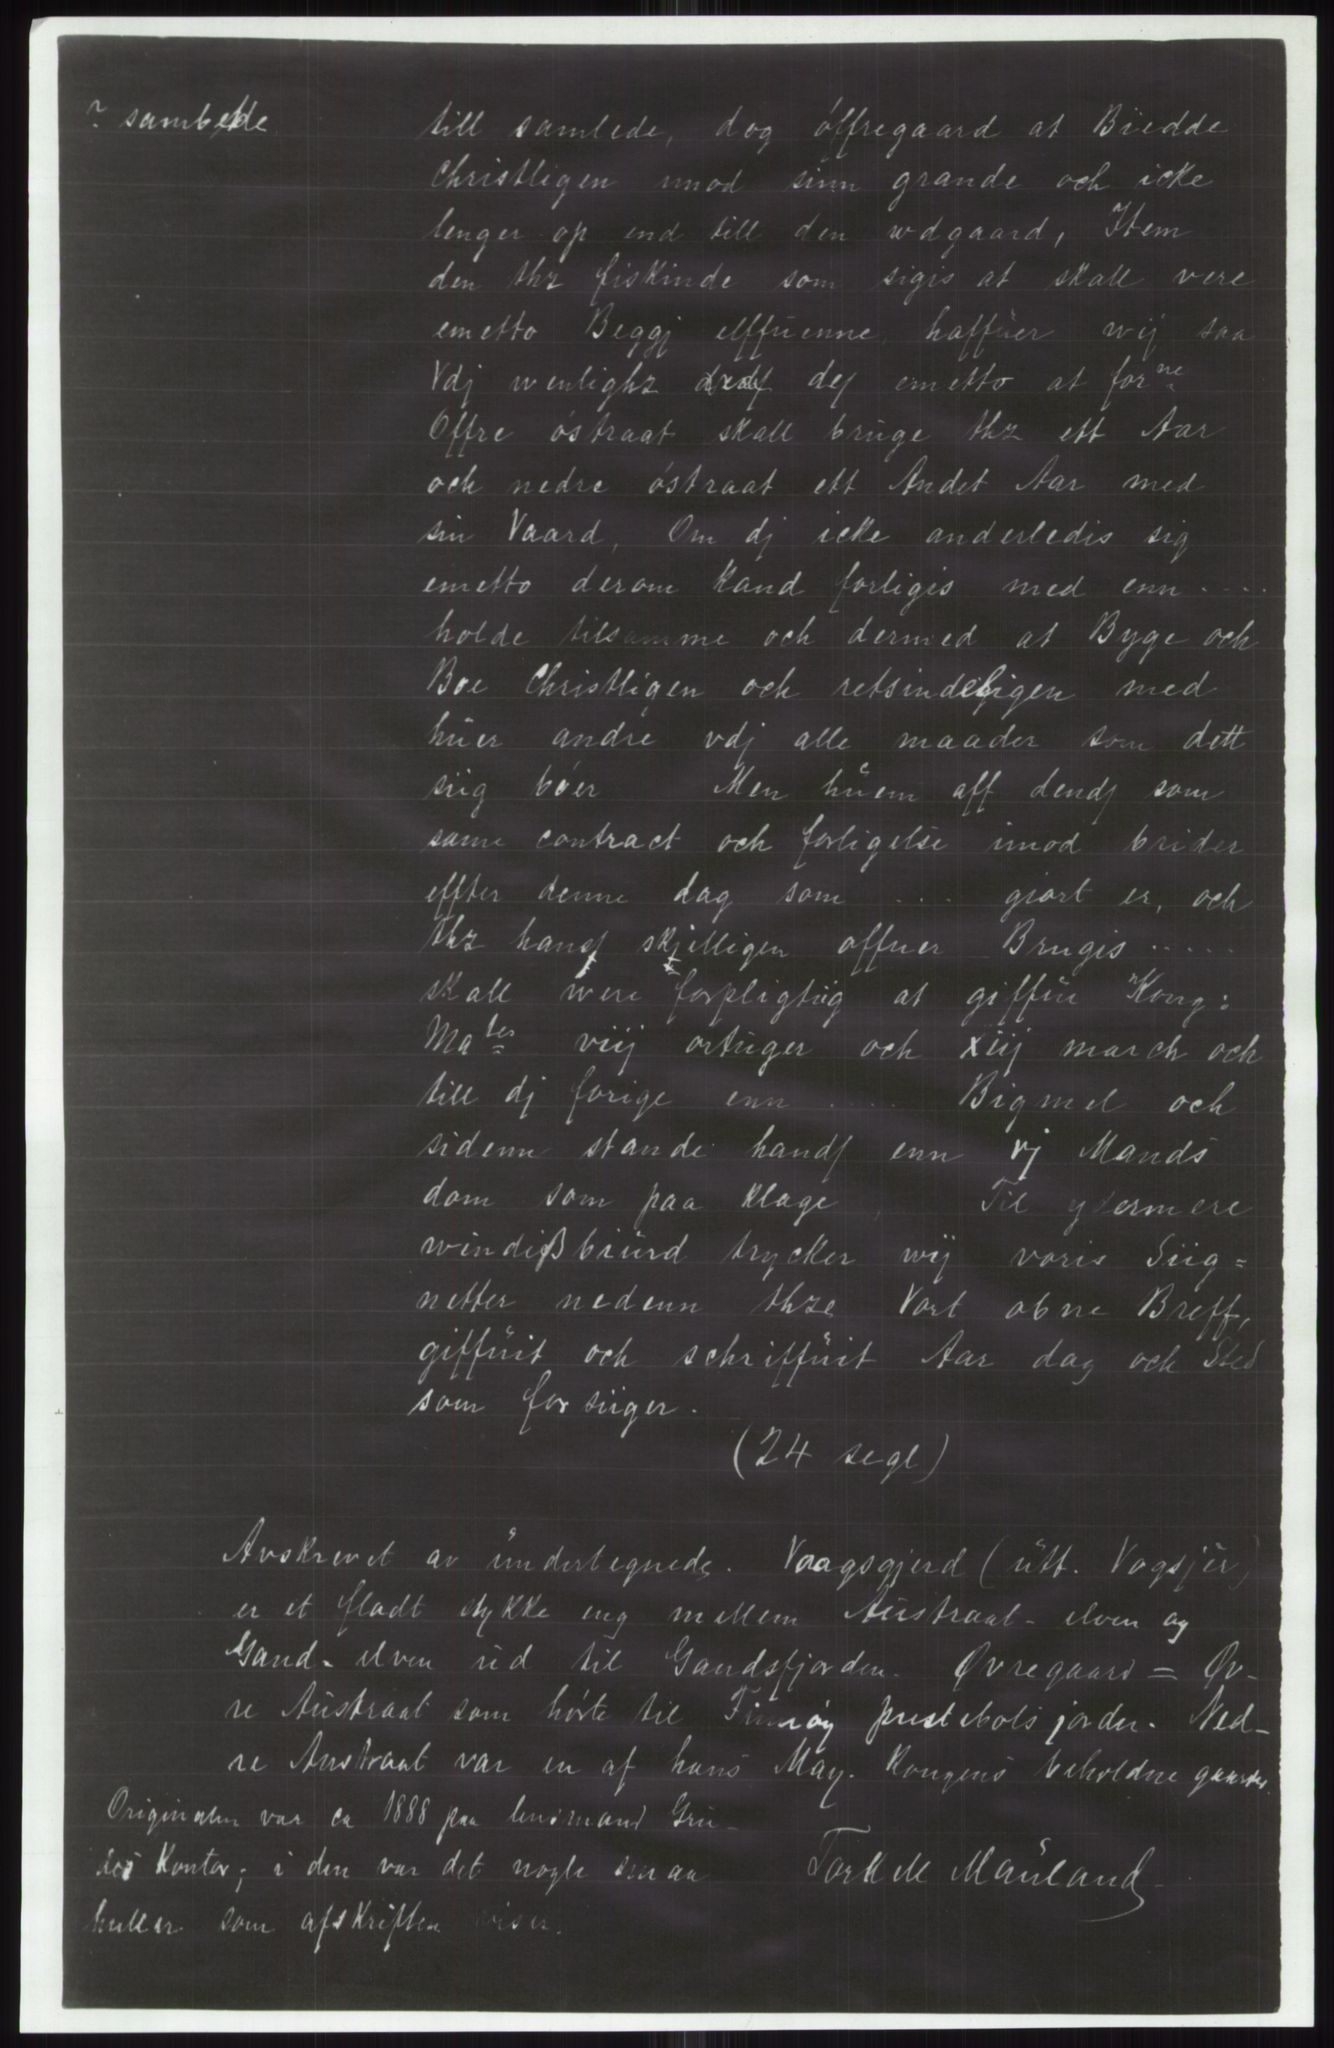 ? sambette
till samlede, dog óffregaard at Biedde
Christligen imod sinn grande och icke
lenger op end till den wdgaard, Item
den thz fiskinde som sigis at skall vere
emetto Beggj elffuenne, haffüer wij saa
Vdj wenlighz dej emetto at for ne
Offre óstraat skall brüge thz ett Aar
och nedre óstraat ett Andet Aar med
sin Vaard, Om dj icke anderledis sig
emetto derom Kand forligis med enn ....
holde tilsamme och dermed at Byge och
Boe Christligen och retsindeligen med
hüer andre vdj alle maader som dett
siig bóer Men hüem aff dendj som
same contract och forligelse imod brider
effter denne dag som .... giort er, och
thz hanſ skjelligen offuer Brugis .....
skall were forpligtüg at giffüe Kong:
Ma tes viij ortuger och xiij march och
till dj forige enn .... Bigmel och
sidenn stande handſ enn vj Mands
dom som paa klage, Til ydermere
windißbiürd trycker wij voris Siig=
netter nedenn thze Vort obne Breff,
giffüit och schriffüit Aar dag och Sted
som for siiger.
(24 segl)
Avskrevet av ündertegnede. Vaagsgjerd (ütt. Vogsjèr)
er et fladt stykke eng mellem Aüstraat-elven og
Gand-elven üd til Gandsfjorden. Øvregaard = Øv-
re Aüstraat som hørte til Finnøy prestebolsjorder. Ned-
re Austraat var en af hans May. Kongens beholdne gaarder.
Originalen var ca 1888 paa lensmand Grü-
des Kontor; i den var det nogle smaa
huller som afskriften viser.
Torkell Maüland